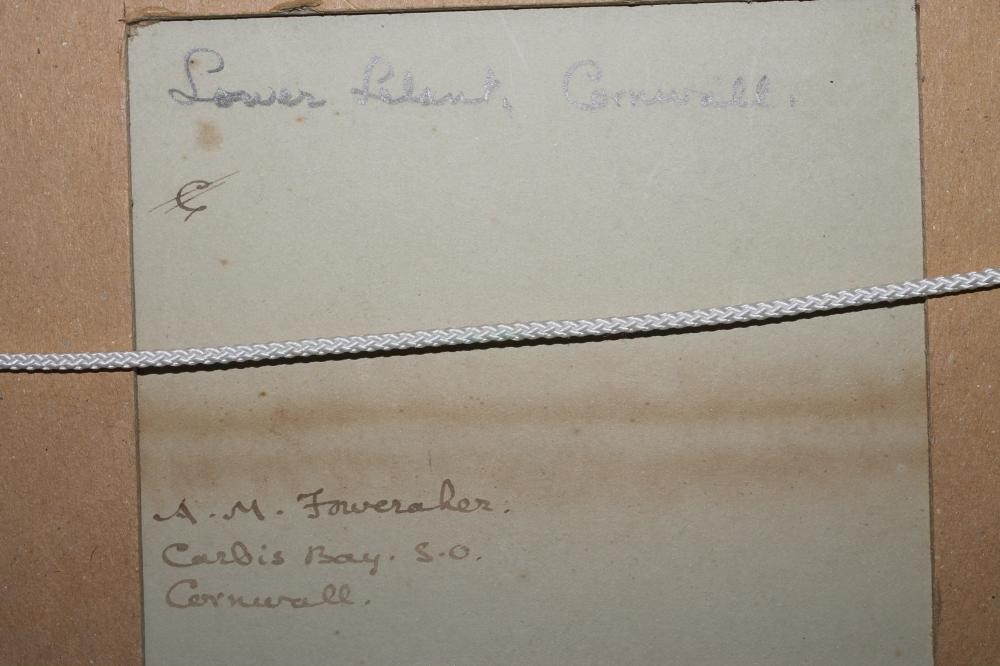 Lower Lelant, Cornwall.
C
A. M. Foweraker.
Carbis Bay. S.O.
Cornwall.